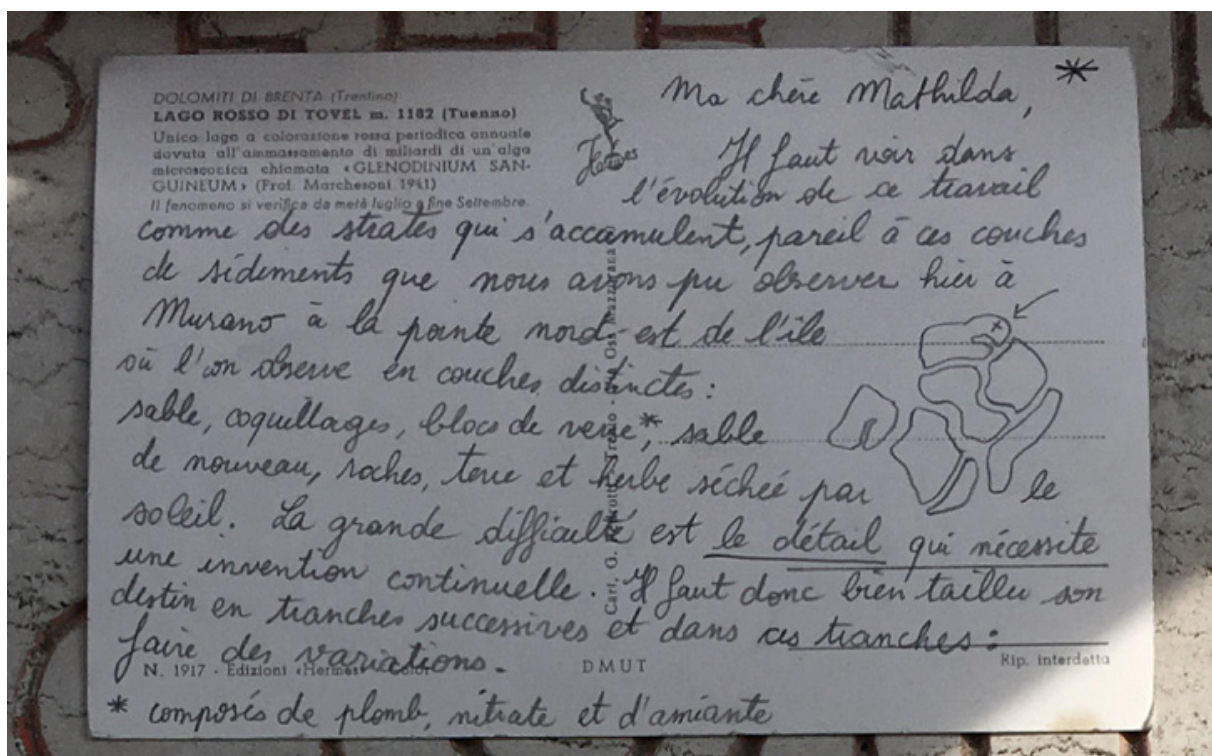 DOLOMITI DI BRENTA (Trentino)
LAGO ROSSO DI TOVEL m. 1182 (Tuenno)
Unico lago a colorazione rossa periodica annuale
dovuta all'ammassamento di miliardi di un'alga
microscopica chiamata «GLENODINIUM SAN-
GUINEUM» (Prof. Marchesoni 1941)
Il fenomeno si verifica da metà luglio a fine Settembre.
Hermes
Ma chère Mathilda, *
Il faut voir dans
l'évolution de ce travail
comme des strates qui s'accumulent, pareil à ces couches
de sédiments que nous avons pu observer hier à
Murano à la pointe nord-est de l'île
où l'on observe en couches distinctes :
sable, coquillages, blocs de verre*, sable
de nouveau, roches, terre et herbe séchée par le
soleil. La grande difficulté est le détail qui nécessite
une invention continuelle. Il faut donc bien tailler son
destin en tranches successives et dans ces tranches :
faire des variations.
Cart. G. Trento
N. 1917 - Edizioni «Hermes»
DMUT
Rip. interdetta
* composés de plomb, nitrate et d'amiante